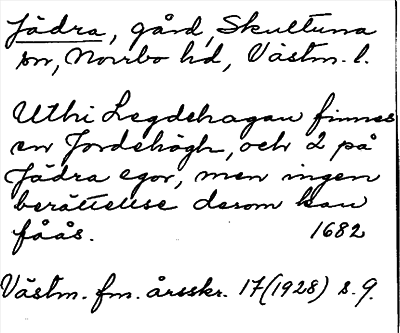 Jädra, gård, Skultuna
sn, Norrbo hd, Västm. l.
Uthi Legdehagan finnes
en Jordehögh, och 2 på
Jädra egor, men ingen
berättellse derom kan
fåås. 1682
Västm. fm. årsskr. 17 (1928) s. 9.